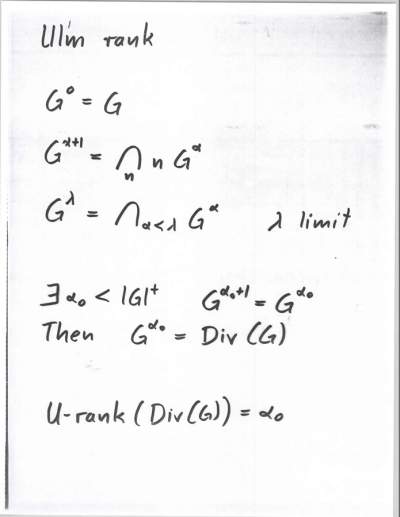 Ulm rank
G⁰ = G
G^{α+1} = ⋂_n n G^α
G^λ = ⋂_{α<λ} G^α λ limit
∃ α₀ < |G|⁺ G^{α₀+1} = G^{α₀}
Then G^{α₀} = Div (G)
U-rank (Div(G)) = α₀